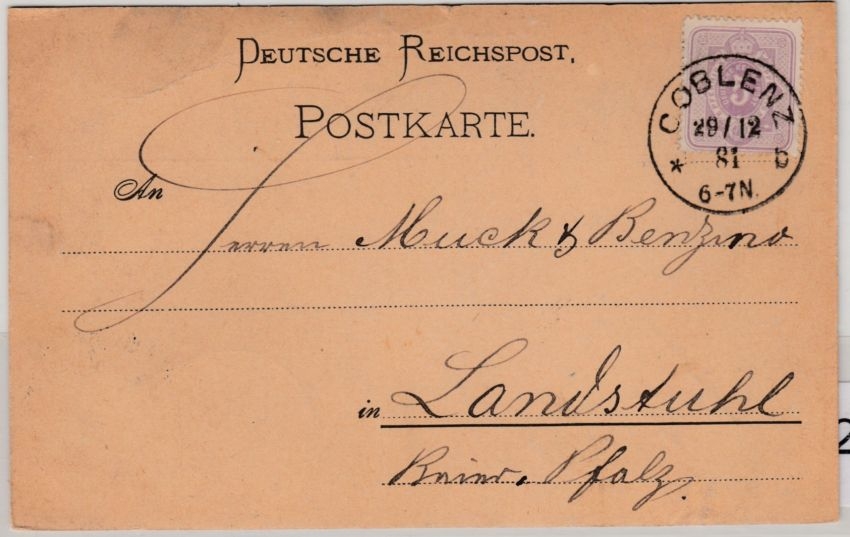 DEUTSCHE REICHSPOST.
POSTKARTE.
COBLENZ
29/12
81 b
6-7N.
5
An
Herren Muck & Benzino
in Landstuhl
Baier. Pfalz.
2